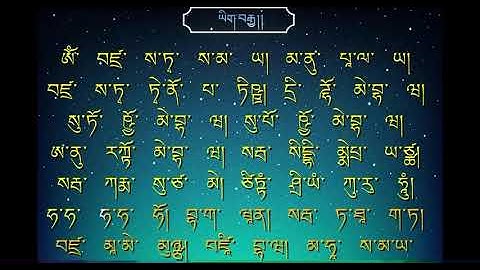 ཡིག་བརྒྱ།།
ཨོཾ་ བཛྲ་ ས་ཏྭ་ ས་མ་ ཡ། མ་ནུ་ པཱ་ལ་ ཡ།
བཛྲ་ ས་ཏྭ་ ཏྭེ་ནོ་ པ་ ཏིཥྛ། དྲི་ ཌྷོ་ མེ་བྷ་ ཝ།
སུ་ཏོ་ ཥྱོ་ མེ་བྷ་ ཝ། སུ་པོ་ ཥྱོ་ མེ་བྷ་ ཝ།
ཨ་ནུ་ རཀྟོ་ མེ་བྷ་ ཝ། སརྦ་ སིདྡྷི་ མྨེ་པྲ་ ཡ་ཙྪ།
སརྦ་ ཀརྨ་ སུ་ཙ་ མེ། ཙིཏྟཾ་ ཤྲི་ཡཾ་ ཀུ་རུ་ ཧཱུྃ།
ཧ་ཧ་ ཧ་ཧ་ ཧོ། བྷ་ག་ ཝཱན། སརྦ་ ཏ་ཐཱ་ ག་ཏ།
བཛྲ་ མཱ་མེ་ མུཉྩ། བཛྲཱི་ བྷ་ཝ། མ་ཧཱ་ ས་མ་ཡ་